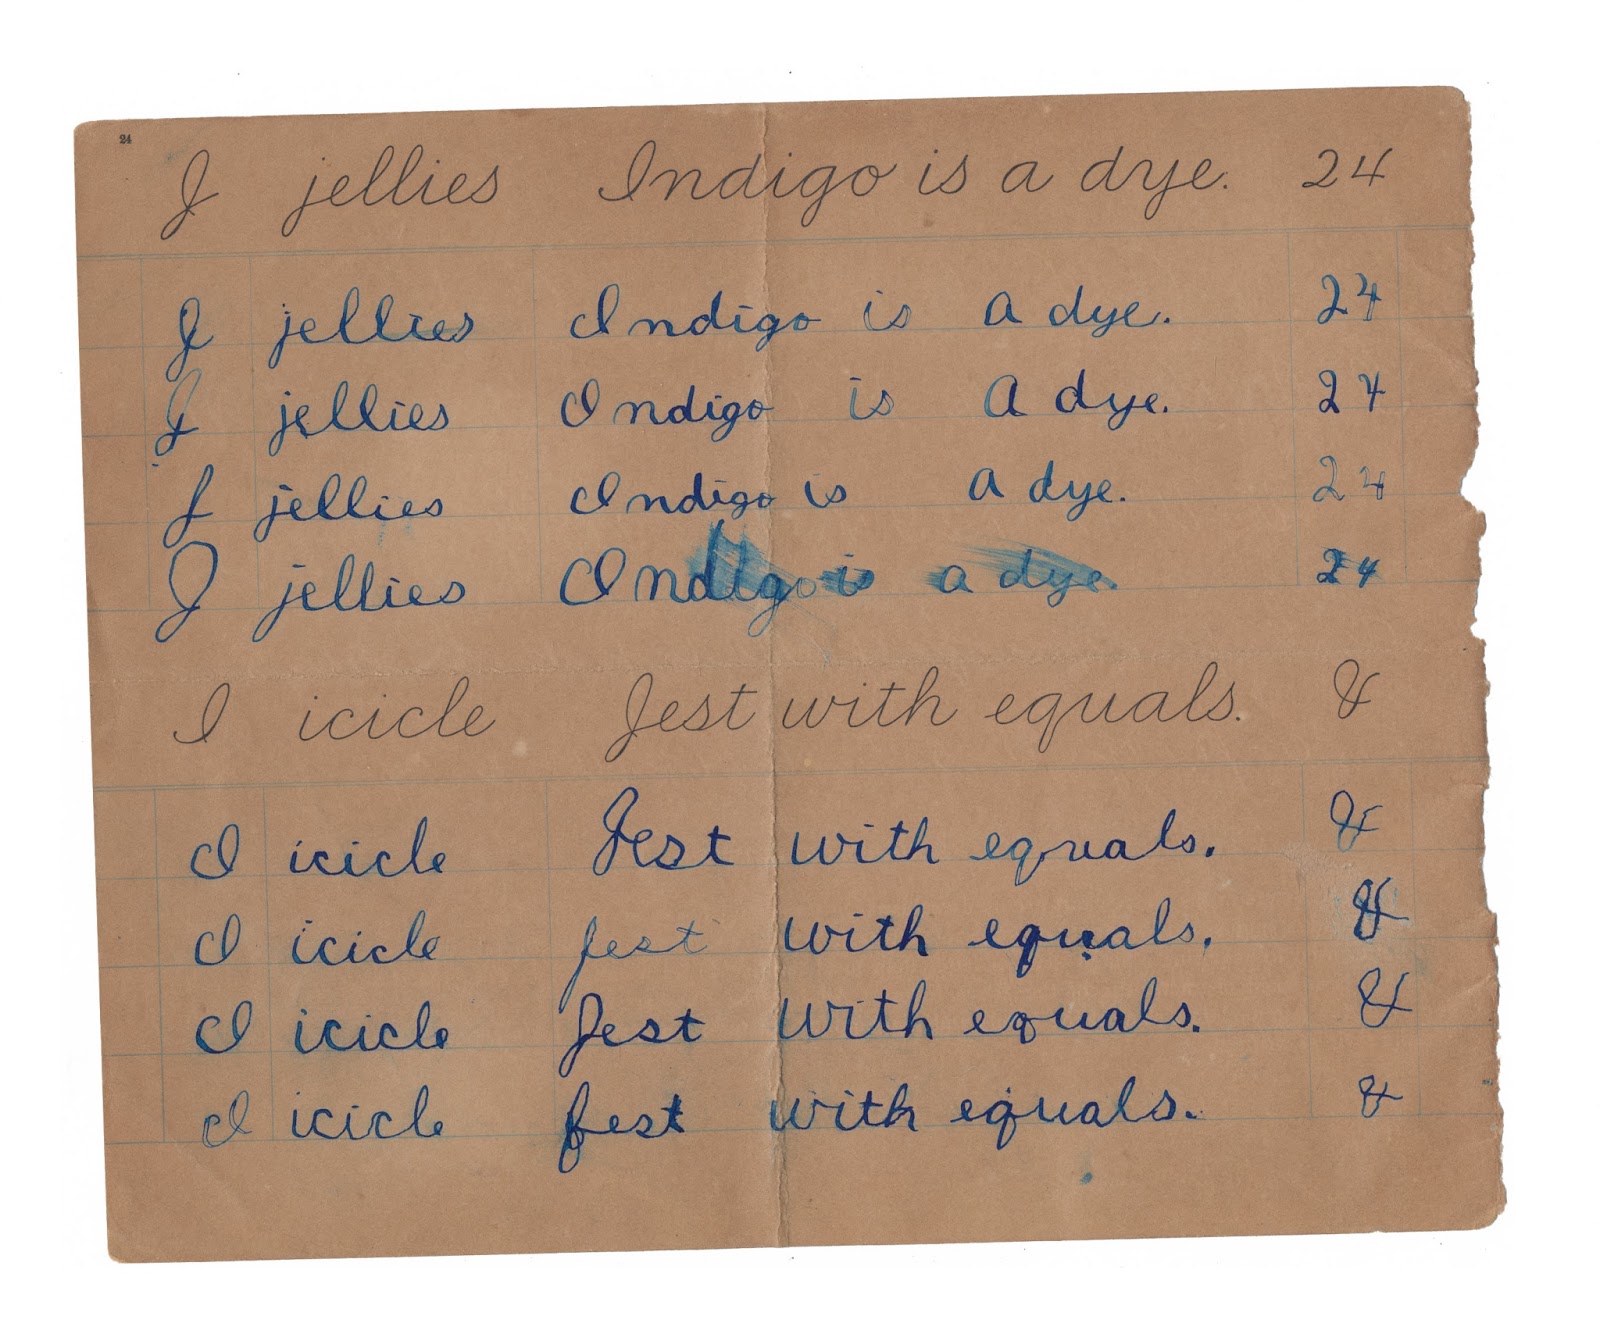 24
J jellies Indigo is a dye. 24
J jellies Indigo is a dye. 24
J jellies Indigo is a dye. 24
J jellies Indigo is a dye. 24
J jellies Indigo is a dye. 24
I icicle Jest with equals. &
I icicle Jest with equals. &
I icicle Jest with equals. &
I icicle Jest with equals. &
I icicle Jest with equals. &